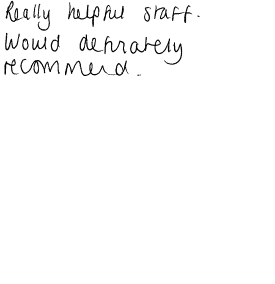 Really helpful staff.
Would definately
recommend.